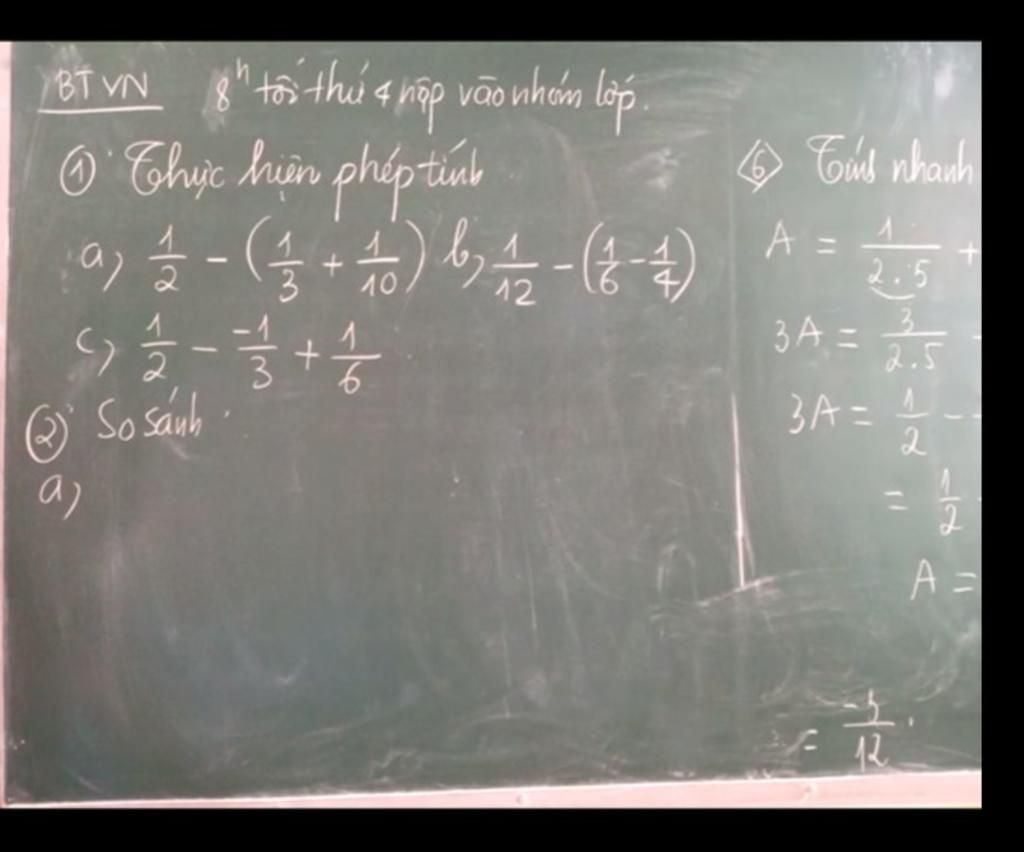 BTVN 8h tối thứ 4 nộp vào nhóm lớp.
① Thực hiện phép tính
a, 1/2 - (1/3 + 1/10) b, 1/12 - (1/6 - 1/4)
c, 1/2 - -1/3 + 1/6
② So sánh
a,
⑥ Tính nhanh
A = 1/2.5 +
3A = 3/2.5 -
3A = 1/2 -
= 1/2 -
A =
= /12